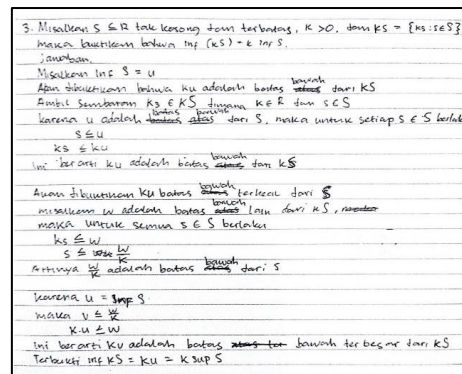 3. Misalkan S ⊆ R tak kosong dan terbatas, K > 0, dan KS = {ks : s ∈ S}
maka buktikan bahwa inf (KS) = k inf S.
jawaban.
Misalkan inf S = u
Akan dibuktikan bahwa ku adalah batas bawah dari KS
Ambil sembarang ks ∈ KS dimana K ∈ R dan s ∈ S
karena u adalah batas bawah dari S, maka untuk setiap s ∈ S berlaku
s ≤ u
ks ≤ ku
Ini berarti ku adalah batas bawah dari KS
Akan dibuktikan ku batas bawah terkecil dari S
misalkan w adalah batas bawah lain dari KS,
maka untuk semua s ∈ S berlaku
ks ≤ w
s ≤ w/k
Artinya w/k adalah batas bawah dari S
karena u = inf S
maka u ≤ w/k
k.u ≤ w
Ini berarti ku adalah batas bawah terbesar dari KS
Terbukti inf KS = ku = k sup S